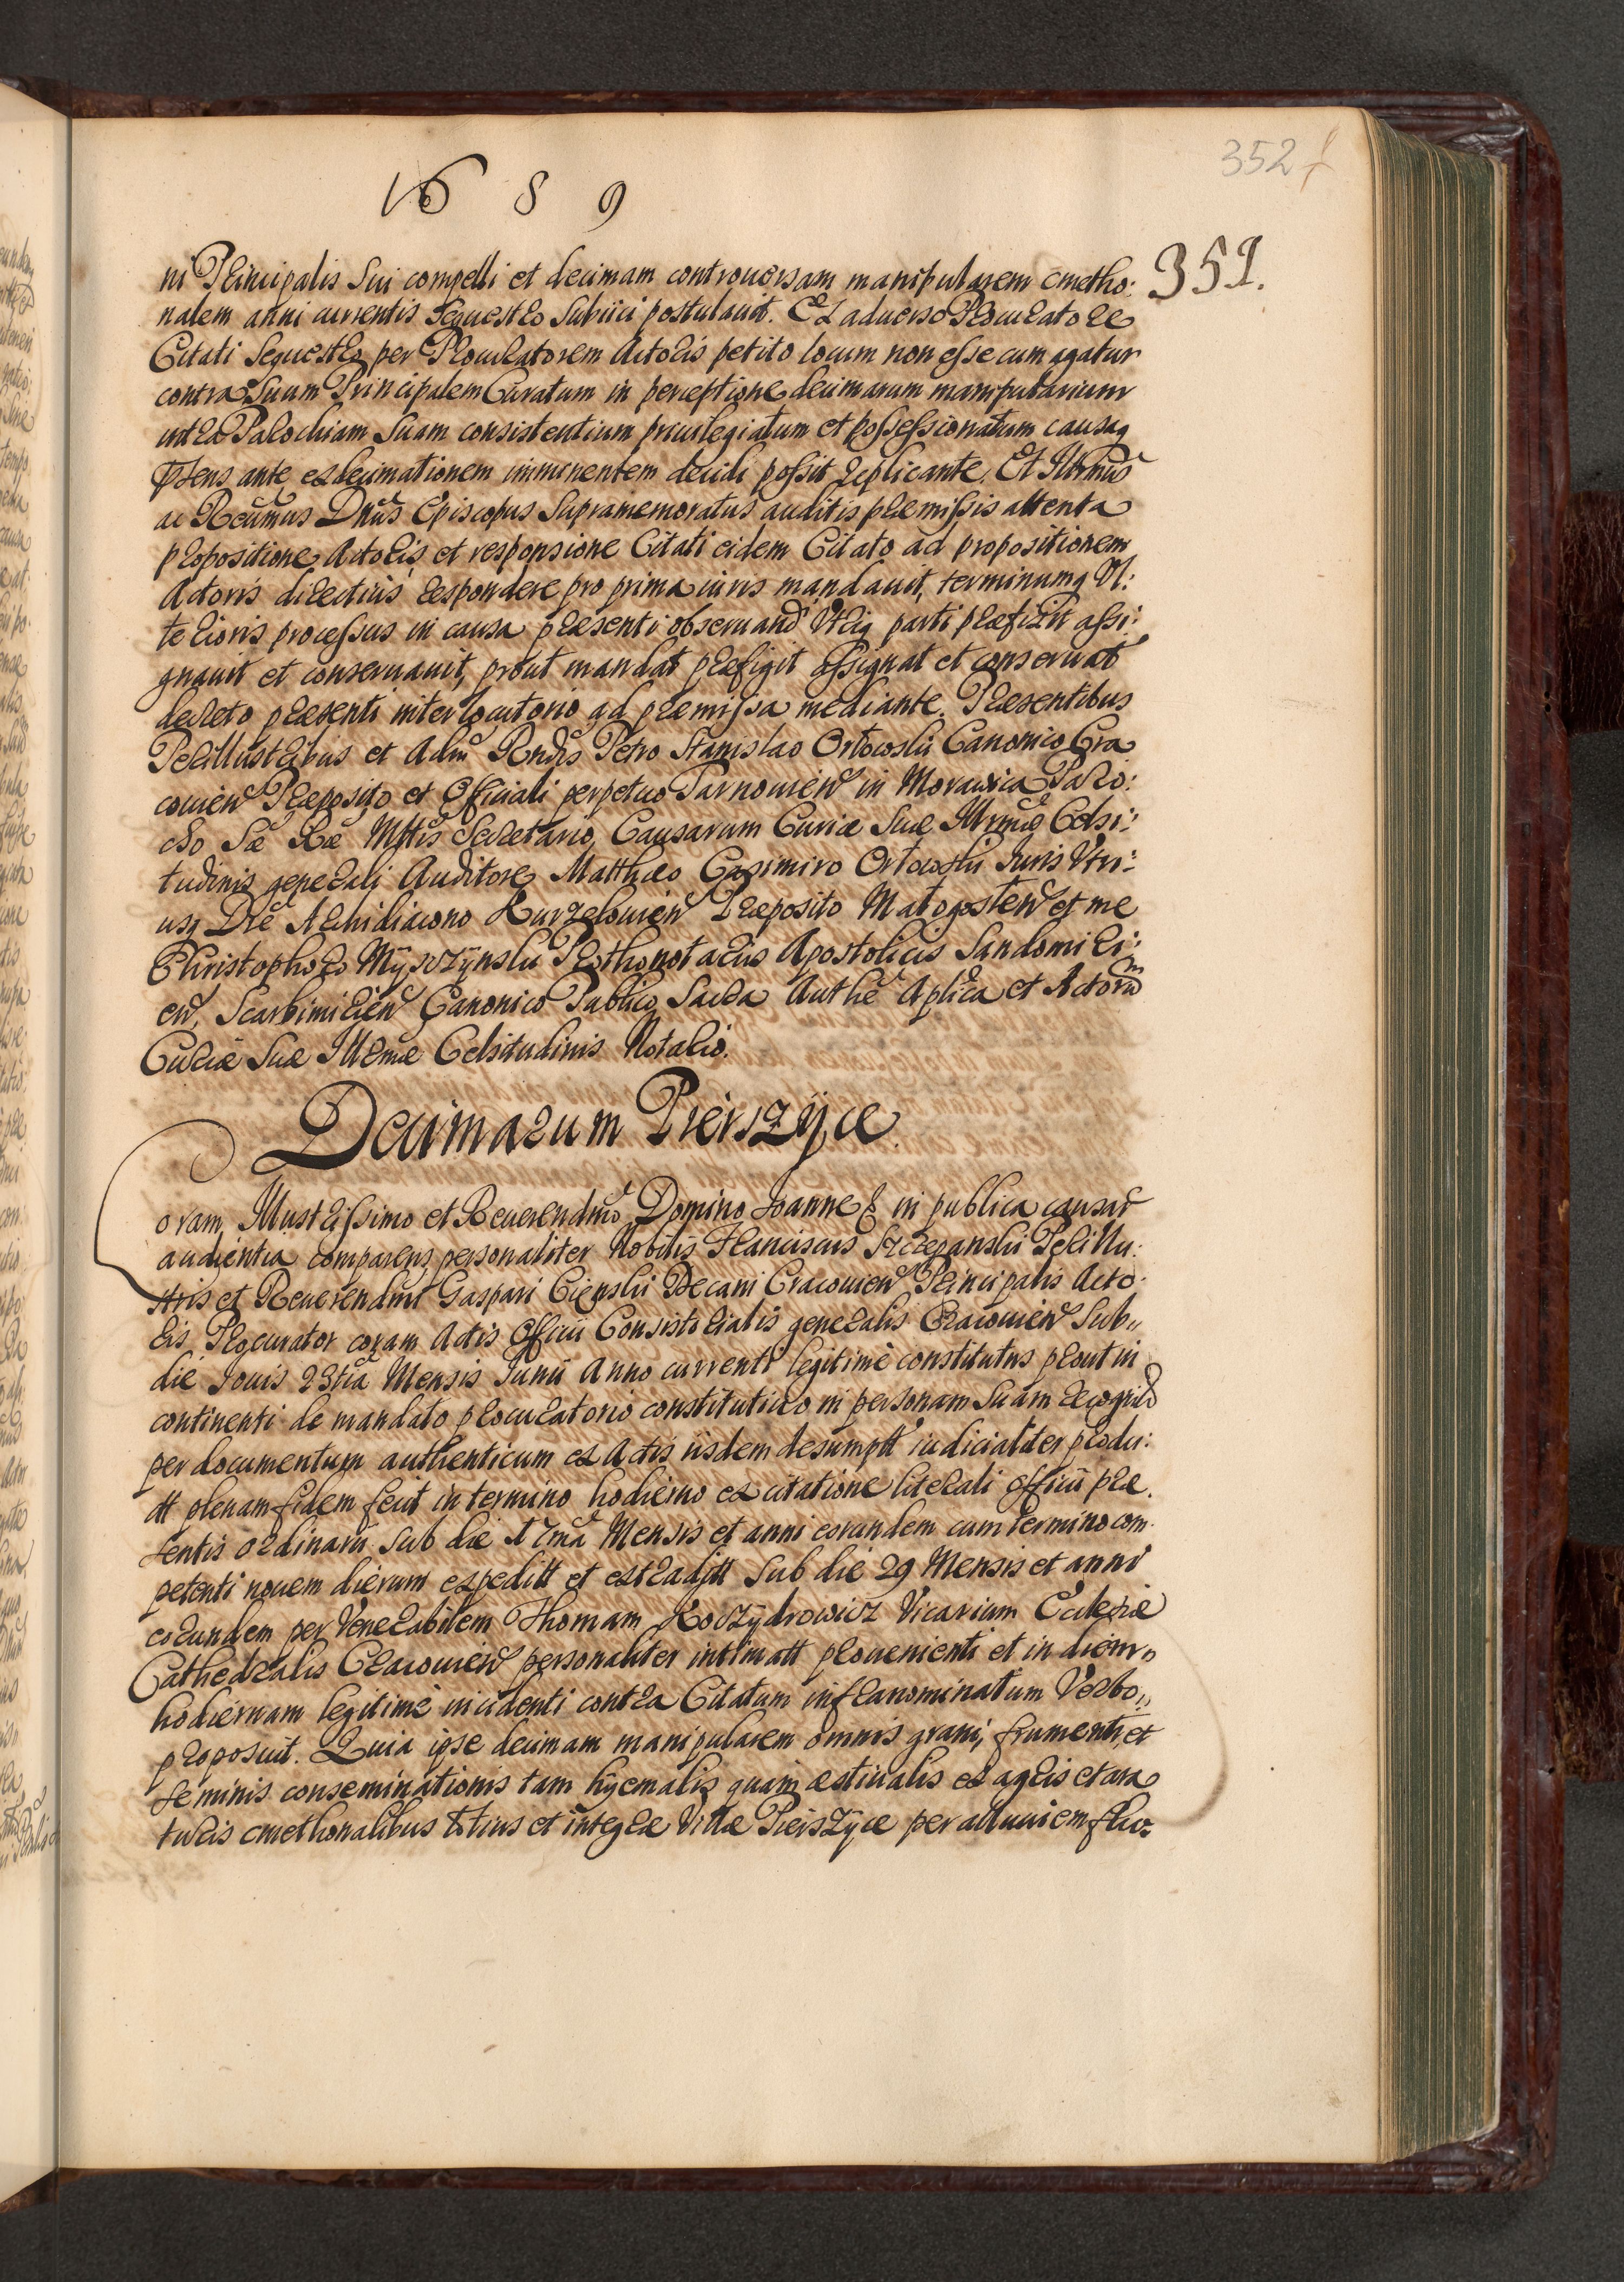 352
1689
351.
ni Principalis Sui compelli et decimam controuersam manipularem cmetho:
nalem anni currentis Sequestro Subiici postulauit. Ex aduerso Procuratore
Citati Sequestro per Procuratorem Actoris petito locum non esse cum agatur
contra Suum Principalem Curatum in perceptione decimarum manipularium
intra Parochiam Suam consistentium priuilegiatum et possessionatum causaq
pñens ante exdecimationem imminentem decidi possit replicante. Et Illrmus
ac Reumus Dnus Episcopus Supramemoratus auditis praemissis attenta
propositione Actoris et responsione Citati eidem Citato ad propositionem
Actoris directius respondere pro prima iuris mandauit, terminumq Vl:
terioris processus in causa praesenti obseruand Vtriq parti praefixit assi:
gnauit et conseruauit, prout mandat praefigit assignat et conseruat
decreto praesenti interlocutorio ad praemissa mediante. Praesentibus
Perillustribus et Adm Rndis Petro Stanislao Orłowski Canonico Cra
couien Praeposito et Officiali perpetuo Tarnouien in Morawica Paro:
cho Sae Rae Mttis Secretario, Causarum Curiae Suae Illrmae Celsi:
tudinis generali Auditore, Matthaeo Casimiro Orłowski Iuris Vtri:
usq Dre Archidiacono Kurzelouien Praeposito Małogosten et me
Christophoro Myszzynski Prothonotariis Apostolicis Sandomiri:
en, Scarbimirien Canonico Publico Sacra Authe Aplica et Actorum
Curiae Suae Illrmae Celsitudinis Notario.
Decimarum Pierszyce
Coram Illustrissimo et Reuerendmo Domino Ioanne & in publica causar
audientia comparens personaliter Nobilis Franciscus Szczepanski Perillu:
stris et Reuerendmi Gaspari Cienski Decani Cracouien Principalis Acto:
ris Procurator coram Actis Officii Consistorialis generalis Cracouien Sub
die Iouis 23tia Mensis Iunii Anno currenti legitimè constitutus prout in
continenti de mandato procuratorio constitutiuo in personam Suam recognito
per documentum authenticum ex Actis iisdem desumptt iudicialiter produ:
ctt plenam fidem fecit in termino hodierno ex citatione literali officii prae
sentis ordinarii sub die 17ma Mensis et anni eorundem cum termino com
petenti nouem dierum expeditt et extraditt Sub die 29 Mensis et anni
eorundem per Venerabilem Thomam Koczydrowicz Vicarium Ecclesiae
Cathedralis Cracouien personaliter intimatt prouenienti et in diem
hodiernam legitimè incidenti contra Citatum infranominatum Verbo
proposuit. Quia ipse decimam manipularem omnis grani, frumenti et
seminis conseminationis tam hyemalis quam aestiualis ex agris et ara
turis cmethonalibus totius et integrae Villae Pierszyce per alluuiem fluu: